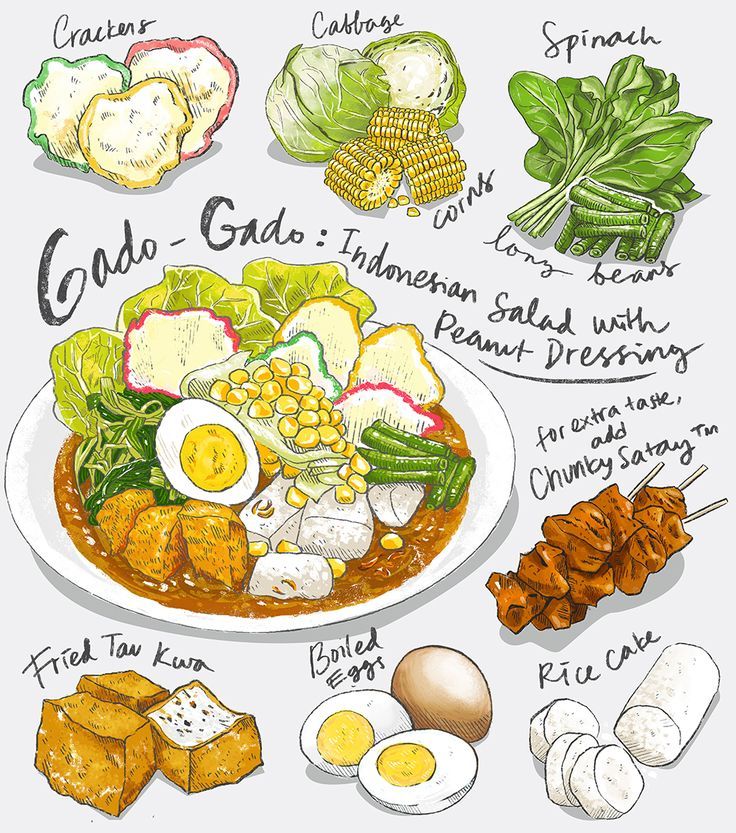 Crackers
Cabbage
Spinach
corns
long beans
Gado - Gado : Indonesian Salad with
Peanut Dressing
for extra taste,
add
Chunky Satay™
Fried Tau Kwa
Boiled
Eggs
Rice Cake